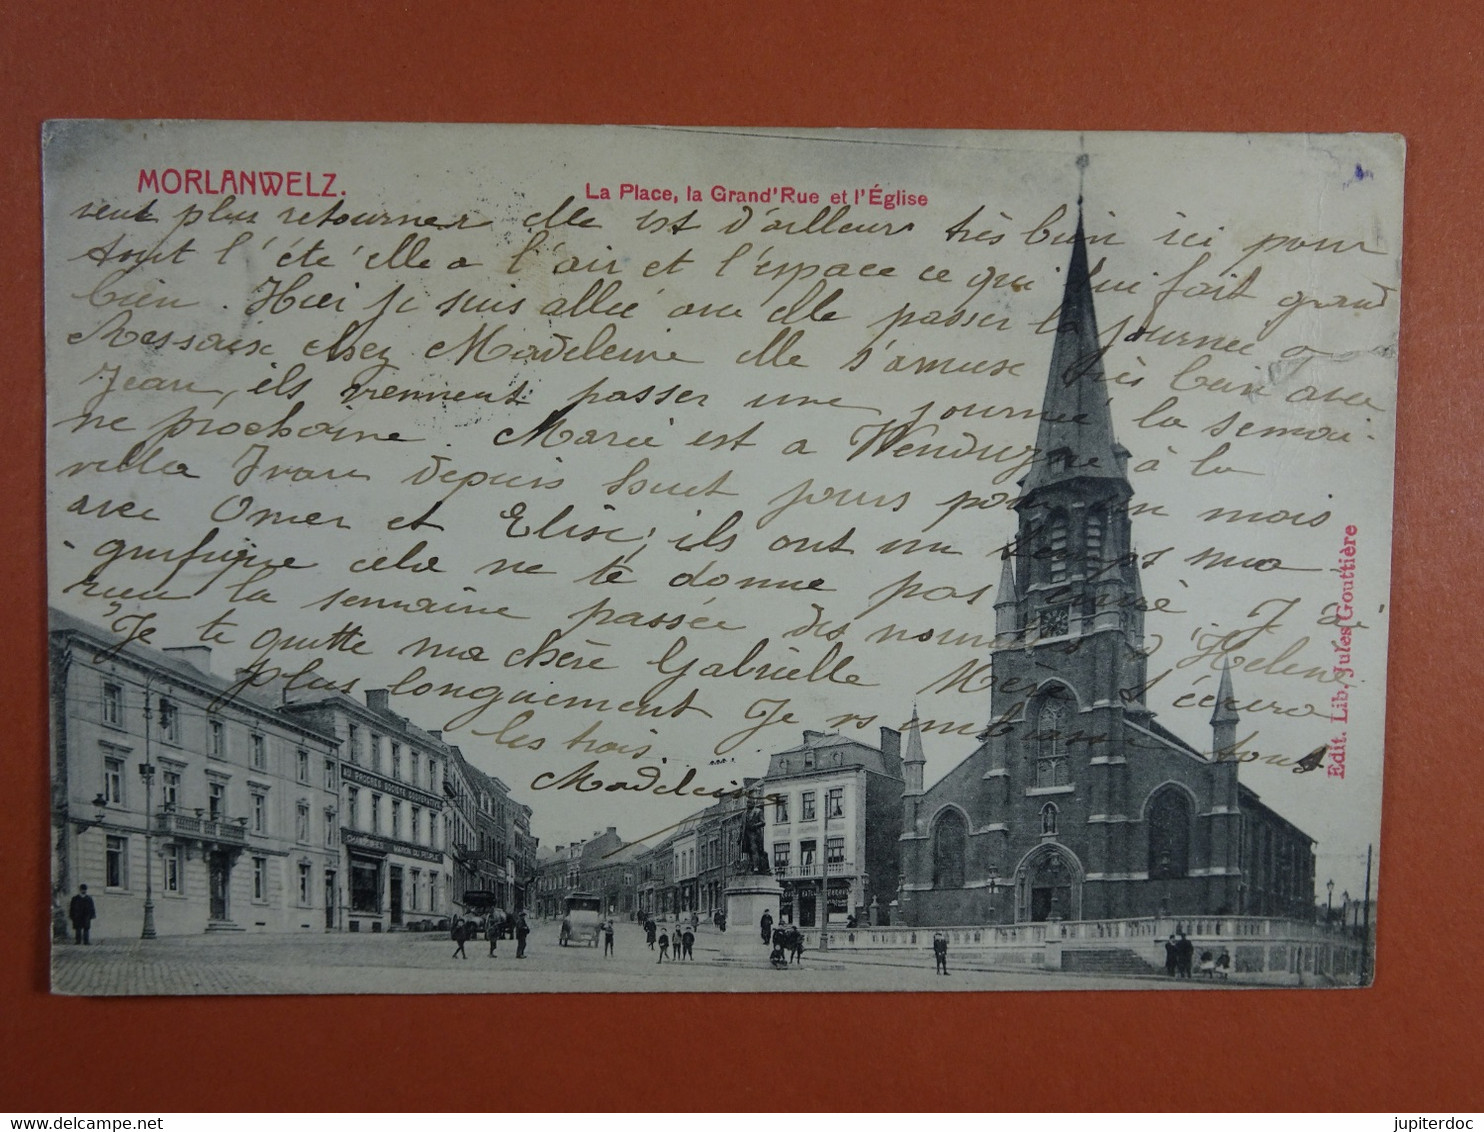 MORLANWELZ.
La Place, la Grand'Rue et l'Église
veut plus retourner elle est d'ailleurs très bien ici pour
tout l'été elle a l'air et l'espace ce qui lui fait grand
bien. Hier je suis allée avec elle passer la journée a
Ressaix chez Madeleine elle s'amuse très bien avec
Jean, ils viennent passer une journée la semai-
ne prochaine. Marie est a Wenduyne à la
villa Ivan depuis huit jours pour un mois
avec Omer et Elise, ils ont un temps ma-
gnifique cela ne te donne pas envie J'ai
reçu la semaine passée des nouvelles d'Helene
Je te quitte ma chère Gabrielle Mère t'écrira
plus longuement Je vs embrasse tous
les trois.
Madeleine
AU PROGRES SOCIETE COOPERATIVE
MAISON DU PEUPLE
Edit. Lib. Jules Gouttière
www.delcampe.net
jupiterdoc